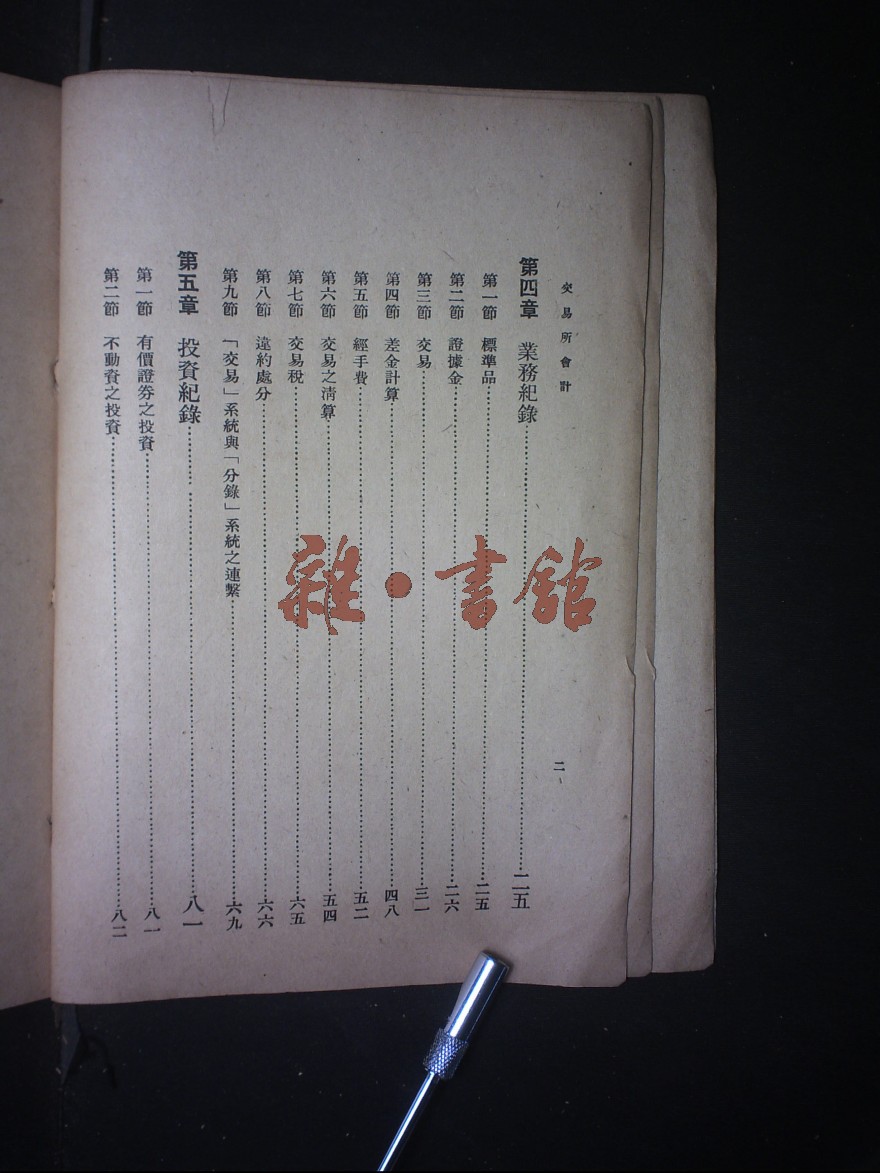 交易所會計
二
第四章 業務紀錄……二五
第一節 標準品……二五
第二節 證據金……二六
第三節 交易……三一
第四節 差金計算……四八
第五節 經手費……五二
第六節 交易之淸算……五四
第七節 交易稅……六五
第八節 違約處分……六六
第九節 「交易」系統與「分錄」系統之連繫……六九
第五章 投資紀錄……八一
第一節 有價證券之投資……八一
第二節 不動資之投資……八二
雜·書館